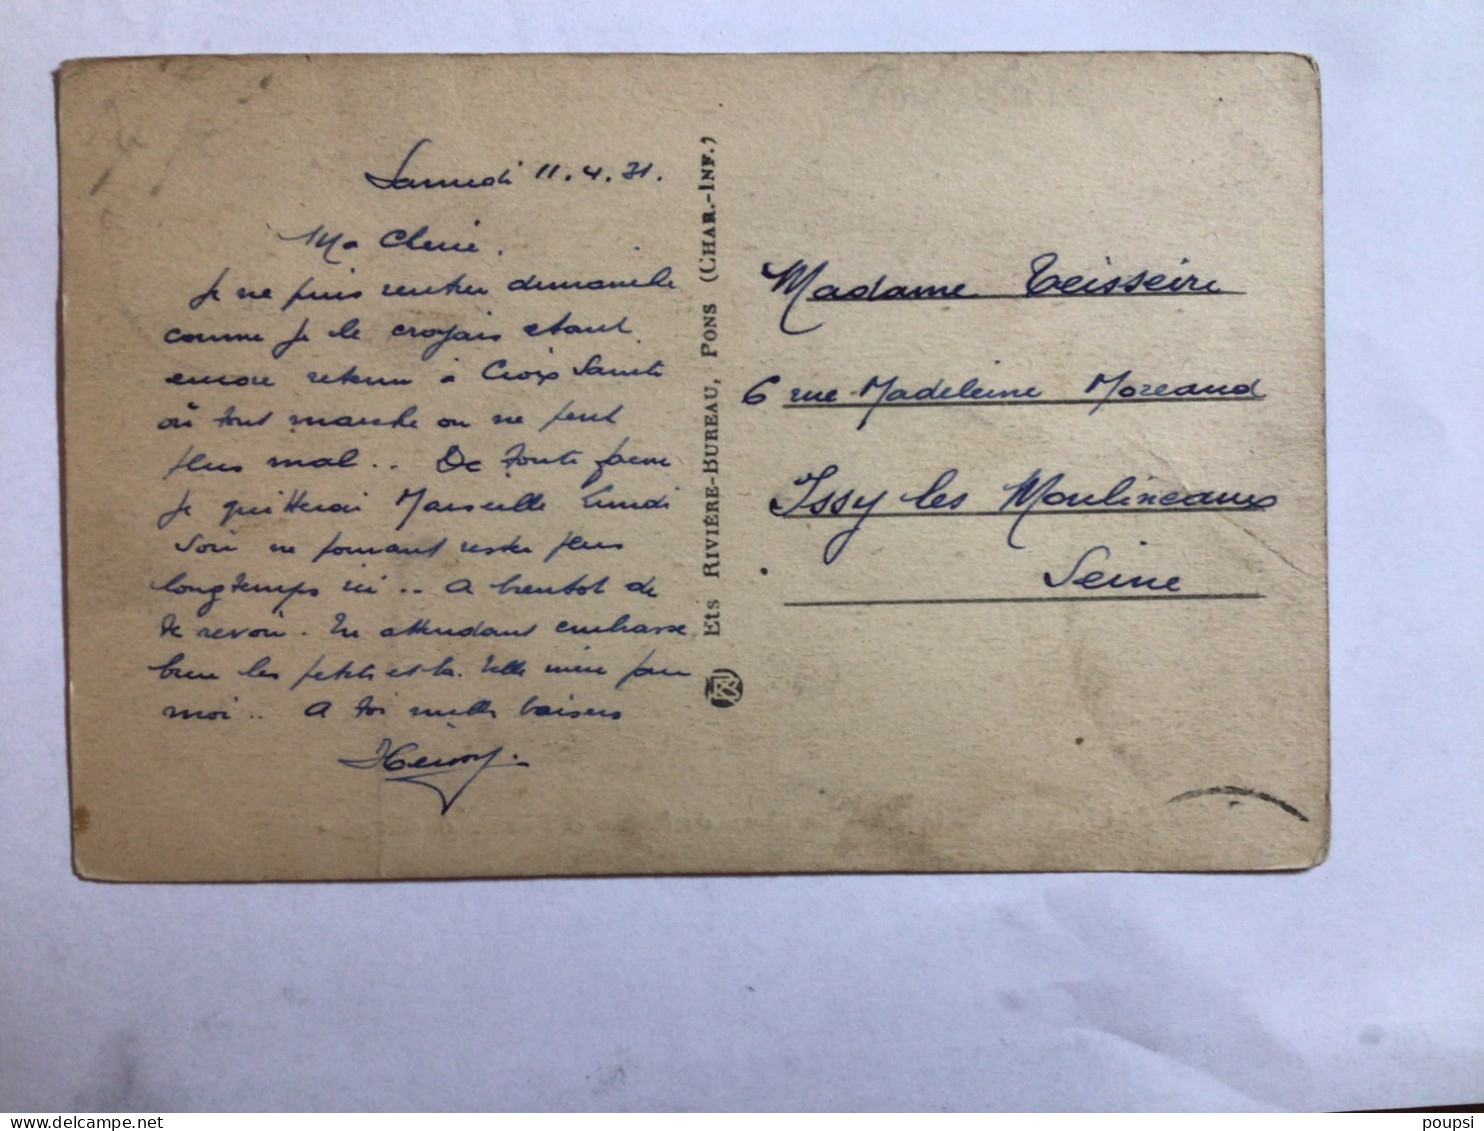 Samedi 11.4.31.
Ma Cherie.
Je ne puis rentrer dimanche
comme je le croyais etant
encore retenu à Croix Sainte
où tout marche on ne peut
plus mal.. De toute facon
je quitterai Marseille Lundi
soir ne pouvant rester plus
longtemps ici.. A bientot de
te revoir. En attendant embrasse
bien les petits et ta mère pour
moi.. A toi mille baisers
Henry.
Ets RIVIÈRE-BUREAU, PONS (CHAR.-INF.)
Madame Teisseire
6 rue Madeleine Moreaud
Issy les Moulineaux
Seine
poupsi